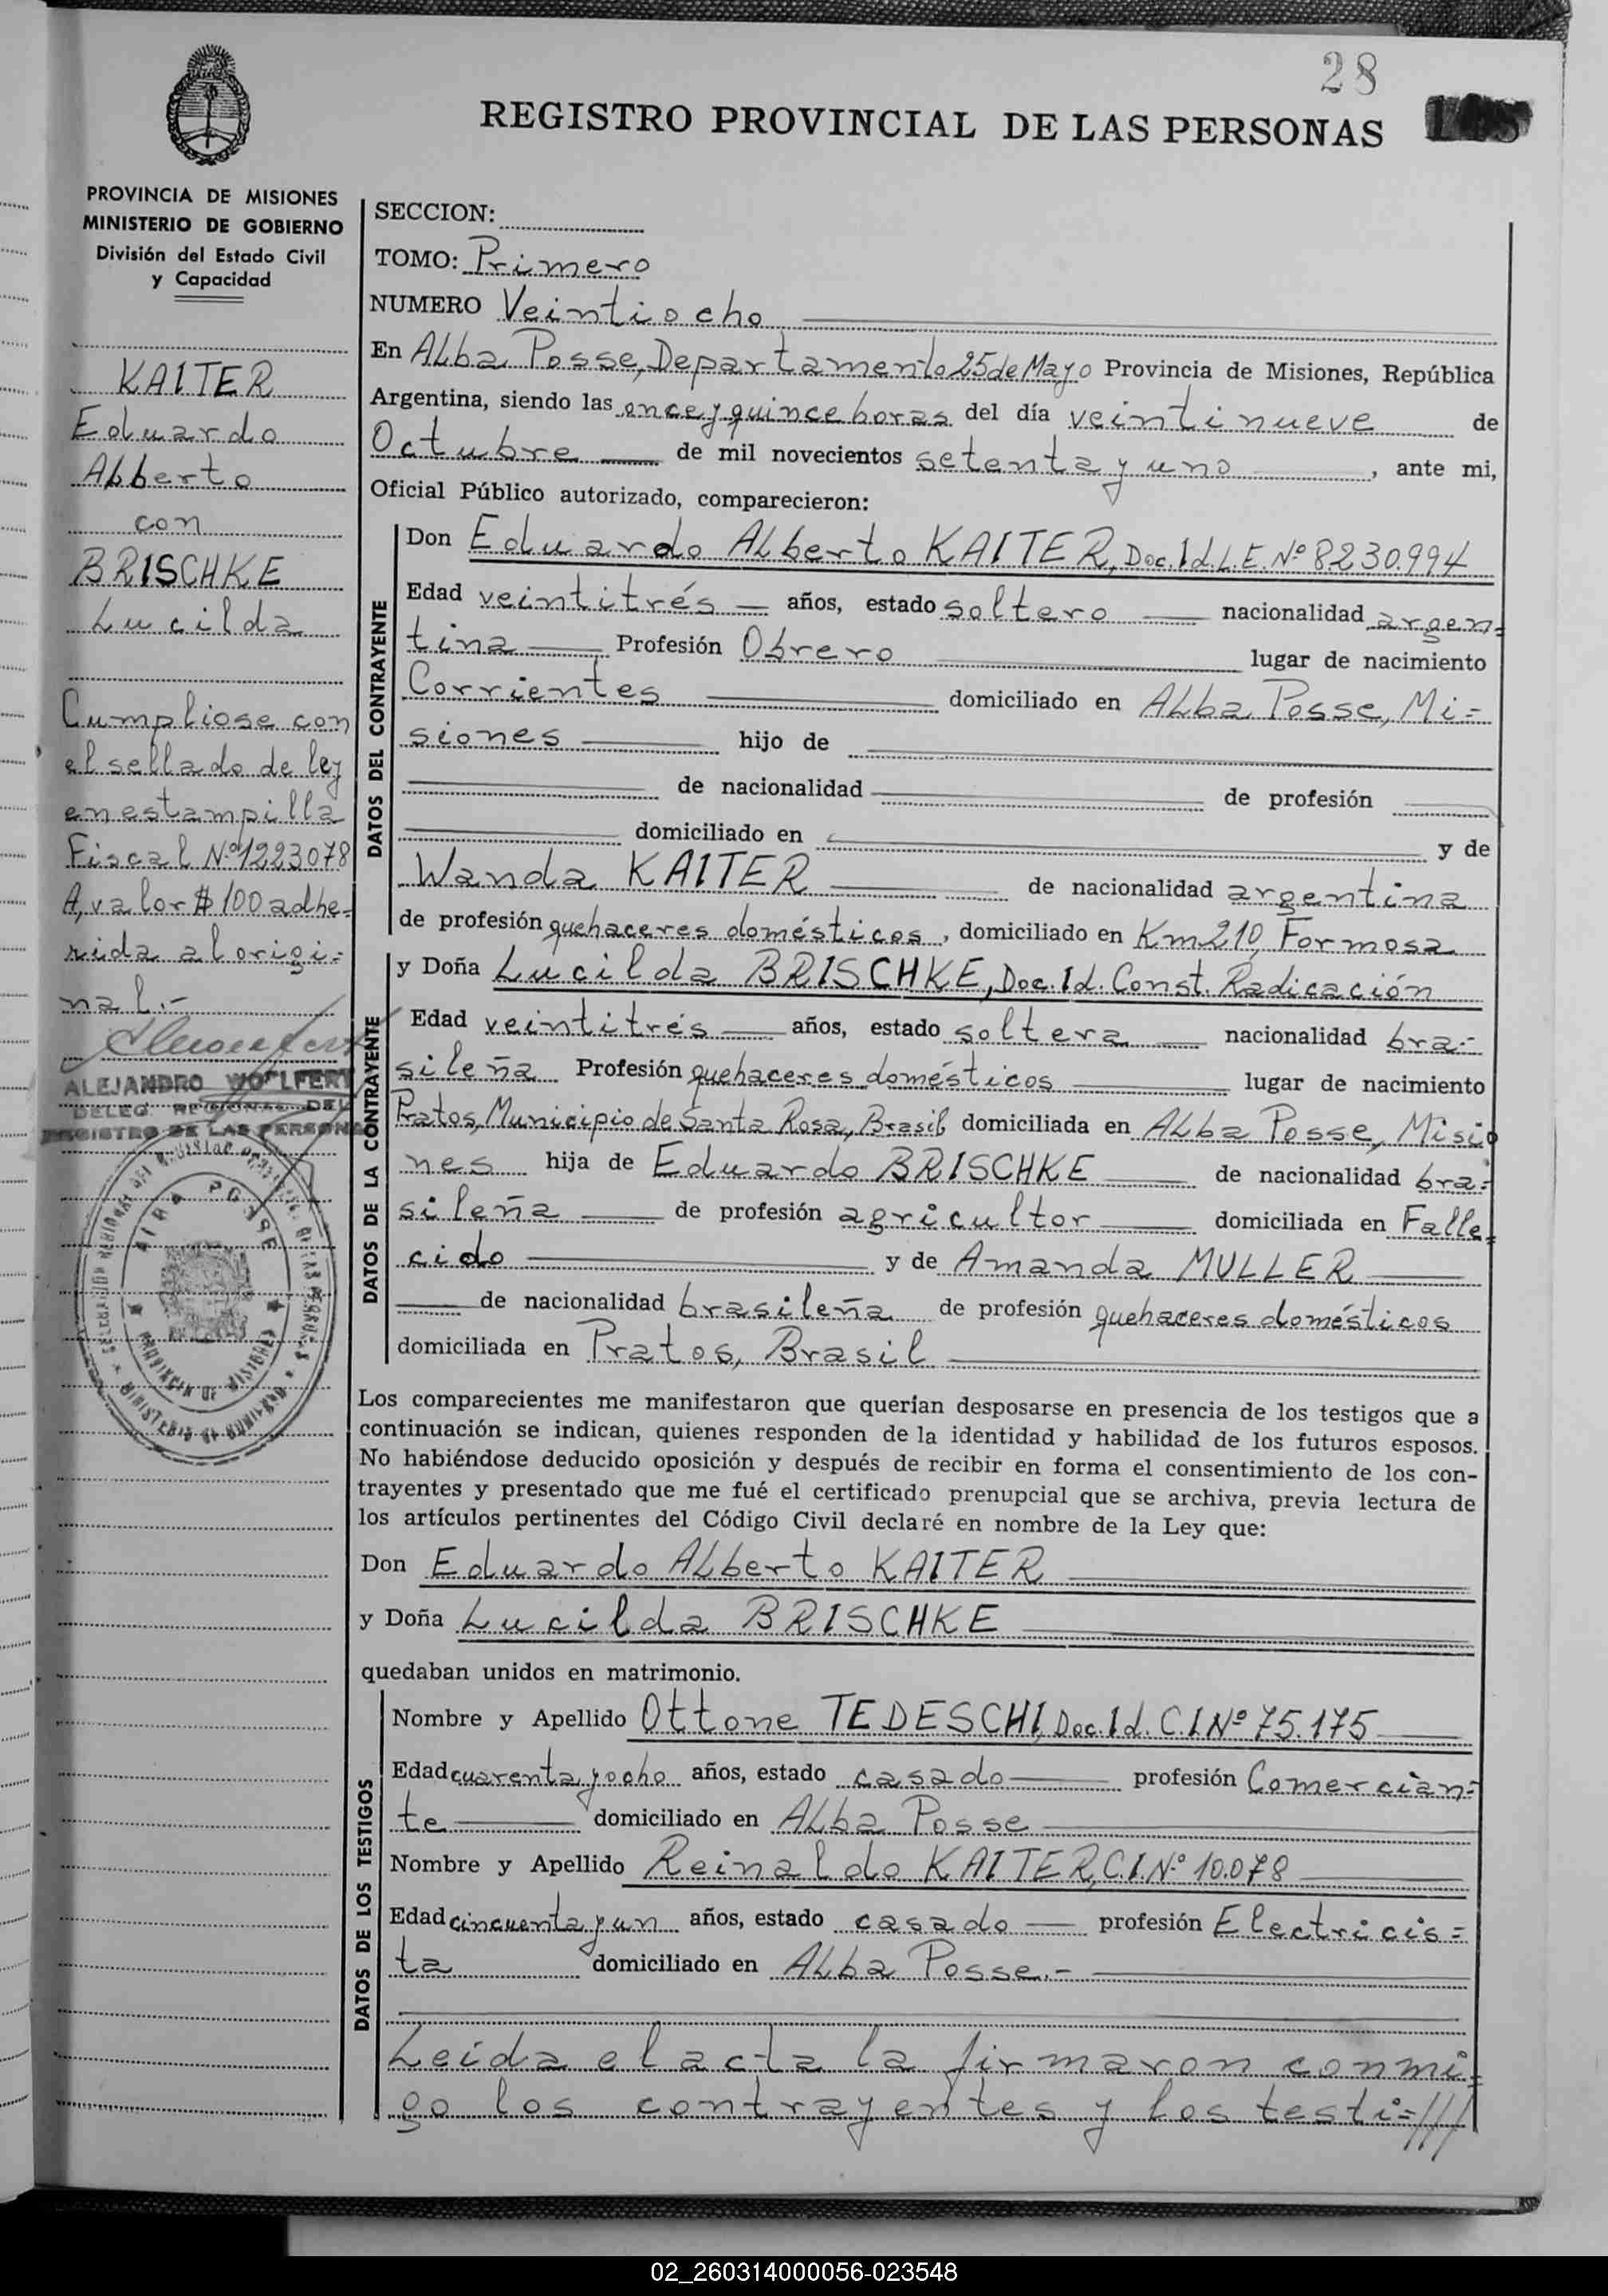 28
REGISTRO PROVINCIAL DE LAS PERSONAS
PROVINCIA DE MISIONES
MINISTERIO DE GOBIERNO
División del Estado Civil
y Capacidad
KAITER
Eduardo
Alberto
con
BRISCHKE
Lucilda
Cumpliose con
el sellado de ley
en estampilla
Fiscal Nº1223078
A, valor $100 adhe=
rida al origi=
nal.-
ALEJANDRO WOLFERT
DELEG. REGIONAL DEL
REGISTRO DE LAS PERSONAS
ALBA POSSE
PROVINCIA DE MISIONES
MINISTERIO DE GOBIERNO
SECCION:
TOMO: Primero
NUMERO Veintiocho
En Alba Posse, Departamento 25 de Mayo Provincia de Misiones, República
Argentina, siendo las once y quince horas del día veintinueve de
Octubre de mil novecientos setenta y uno, ante mi,
Oficial Público autorizado, comparecieron:
DATOS DEL CONTRAYENTE
Don Eduardo Alberto KAITER, Doc. Id. L.E. Nº 8230.994
Edad veintitrés años, estado soltero nacionalidad argen=
tina Profesión Obrero lugar de nacimiento
Corrientes domiciliado en Alba Posse, Mi=
siones hijo de
de nacionalidad de profesión
domiciliado en y de
Wanda KAITER de nacionalidad argentina
de profesión quehaceres domésticos, domiciliado en Km 210, Formosa
DATOS DE LA CONTRAYENTE
y Doña Lucilda BRISCHKE, Doc. Id. Const. Radicación
Edad veintitrés años, estado soltera nacionalidad bra=
sileña Profesión quehaceres domésticos lugar de nacimiento
Pratos, Municipio de Santa Rosa, Brasil domiciliada en Alba Posse, Misio
nes hija de Eduardo BRISCHKE de nacionalidad bra=
sileña de profesión agricultor domiciliada en Falle=
cido y de Amanda MULLER
de nacionalidad brasileña de profesión quehaceres domésticos
domiciliada en Pratos, Brasil
Los comparecientes me manifestaron que querían desposarse en presencia de los testigos que a
continuación se indican, quienes responden de la identidad y habilidad de los futuros esposos.
No habiéndose deducido oposición y después de recibir en forma el consentimiento de los con-
trayentes y presentado que me fué el certificado prenupcial que se archiva, previa lectura de
los artículos pertinentes del Código Civil declaré en nombre de la Ley que:
Don Eduardo Alberto KAITER
y Doña Lucilda BRISCHKE
quedaban unidos en matrimonio.
DATOS DE LOS TESTIGOS
Nombre y Apellido Ottone TEDESCHI, Doc. Id. C.I. Nº 75.175
Edad cuarenta y ocho años, estado casado profesión Comercian=
te domiciliado en Alba Posse
Nombre y Apellido Reinaldo KAITER, C.I. Nº 10.078
Edad cincuenta y un años, estado casado profesión Electricis=
ta domiciliado en Alba Posse.-
Leida el acta la firmaron conmi=
go los contrayentes y los testi=///
02_260314000056-023548